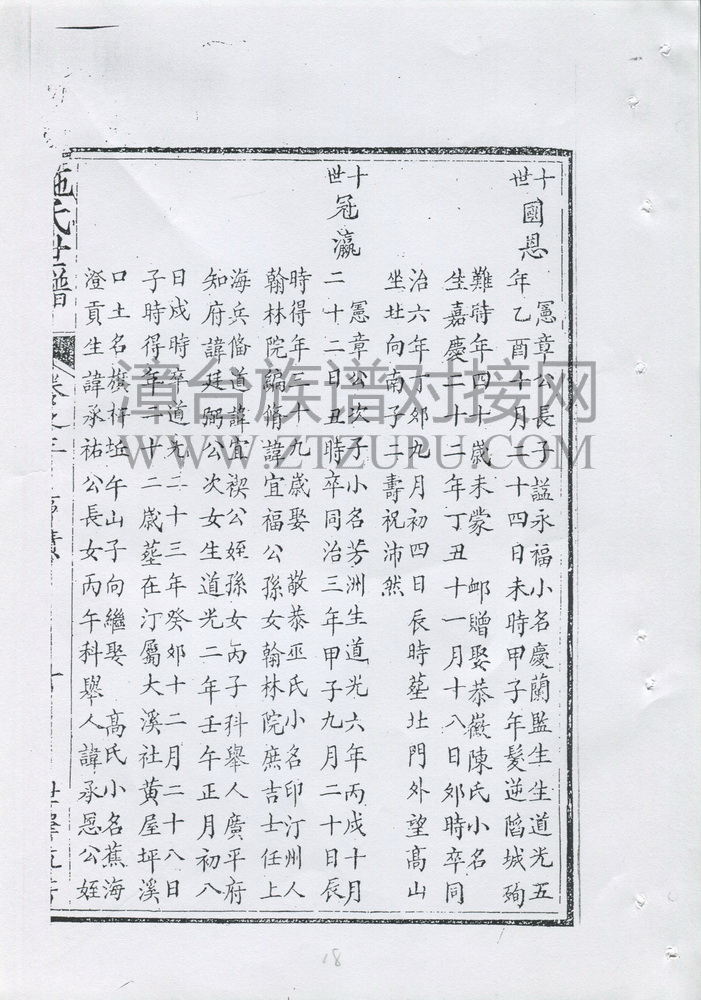 十世 國恩
憲章公長子謚永福小名慶蘭監生生道光五
年乙酉十月二十四日未時甲子年髮逆陷城殉
難時年四十歲未蒙 卹贈娶恭徽陳氏小名
生嘉慶二十二年丁丑十一月十八日夘時卒同
治六年丁夘九月初四日辰時塟北門外望高山
坐北向南子二壽祝沛然
十世 冠瀛
憲章公次子小名芳洲生道光六年丙戌十月
二十二日丑時卒同治三年甲子九月二十日辰
時得年三十九歲娶 敬恭巫氏小名印汀州人
翰林院編脩諱宜福公孫女翰林院庶吉士任上
海兵備道諱宜禊公姪孫女丙子科舉人廣平府
知府諱廷弼公次女生道光二年壬午正月初八
日戌時卒道光二十三年癸夘十二月二十八日
子時得年二十二歲塟在汀屬大溪社黄屋坪溪
口土名旗杆坵午山子向繼娶 高氏小名蕉海
澄貢生諱承祐公長女丙午科舉人諱承恩公姪
施氏世譜
卷之三
漳台族谱对接网
WWW.ZTZUPU.COM
18